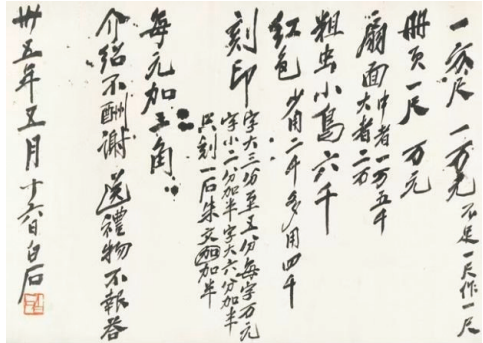 一方尺 一万元 不足一尺作一尺
冊頁一尺 万元
扇面 中者一万五千
大者二万
粗虫小鳥六千
紅色 少用二千多用四千
刻印 字大三分至五分每字万元
字小二分加半字大六分加半
只刻一石朱文加半
每元加五角
介紹不酬謝 送禮物不報答
卅五年五月十六日白石